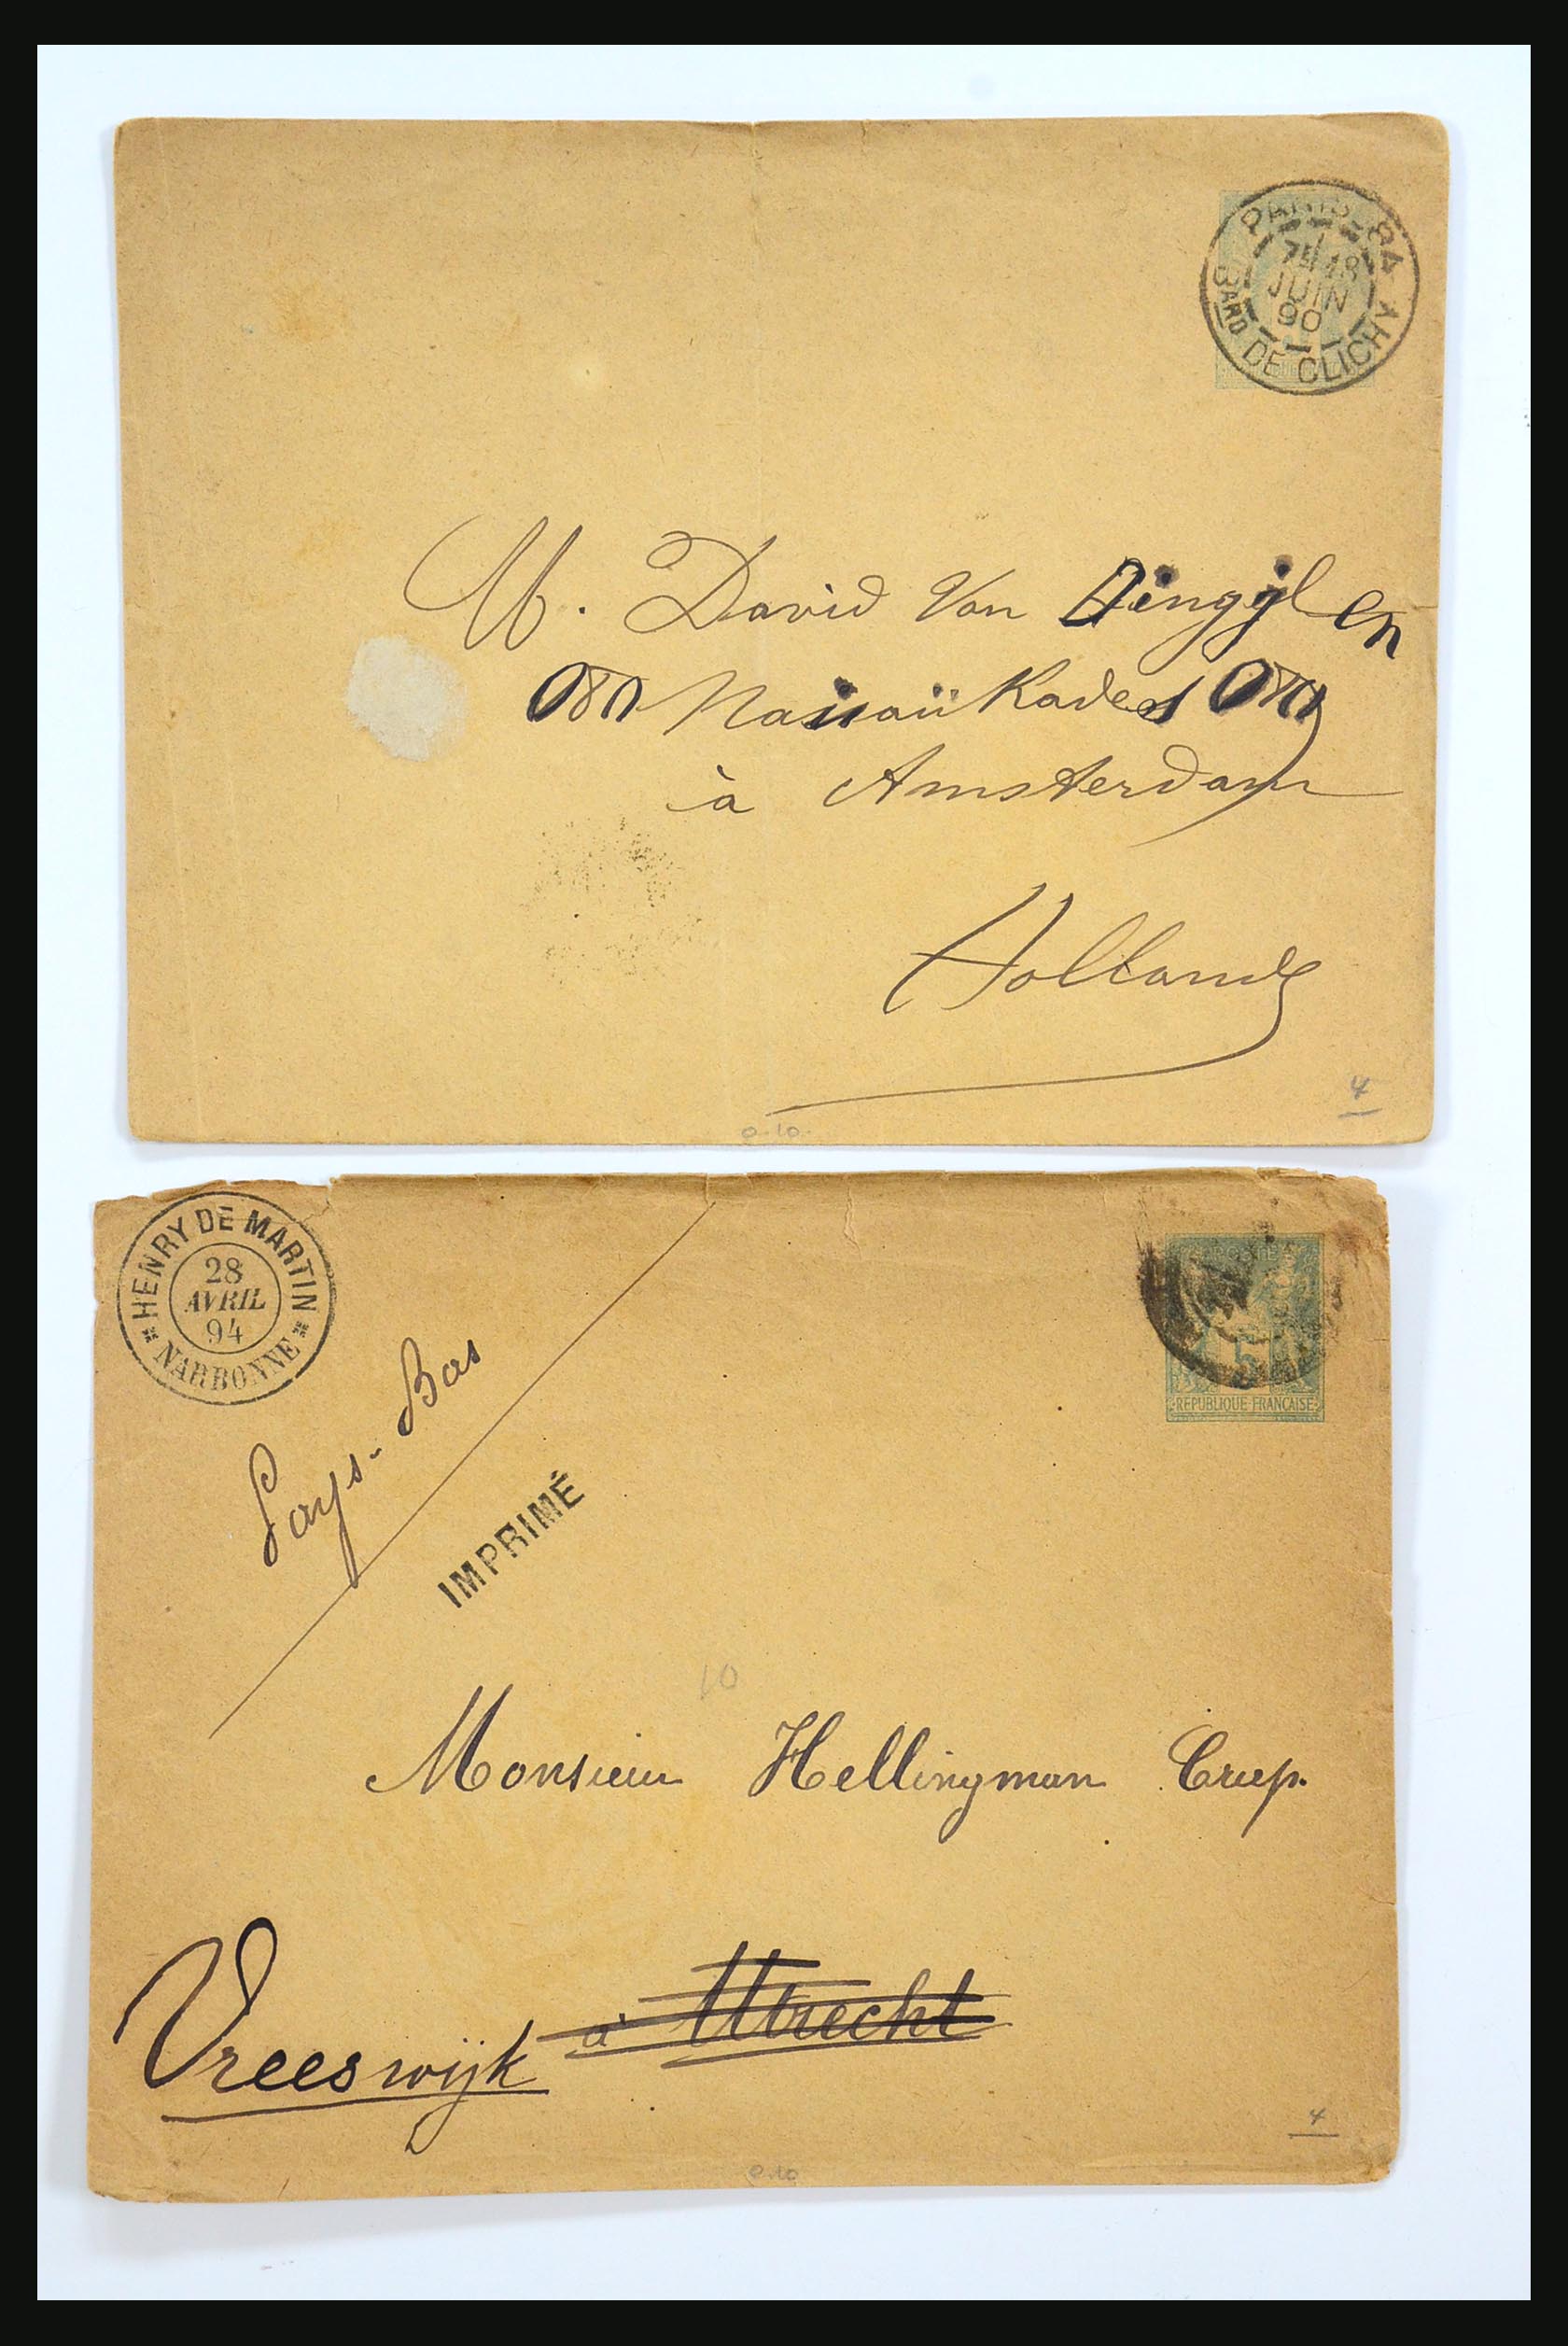 PARIS-84
7E 18
JUIN
90
BARD DE CLICHY
M. David Van
Nassaükade
à Amsterdam
Hollande
4
0-10-
HENRY DE MARTIN
28
AVRIL
94
NARBONNE
Pays-Bas
IMPRIMÉ
5
REPUBLIQUE FRANÇAISE
10
Monsieur Hellingman Crup.
à Utrecht
Vreeswijk
4
0.10